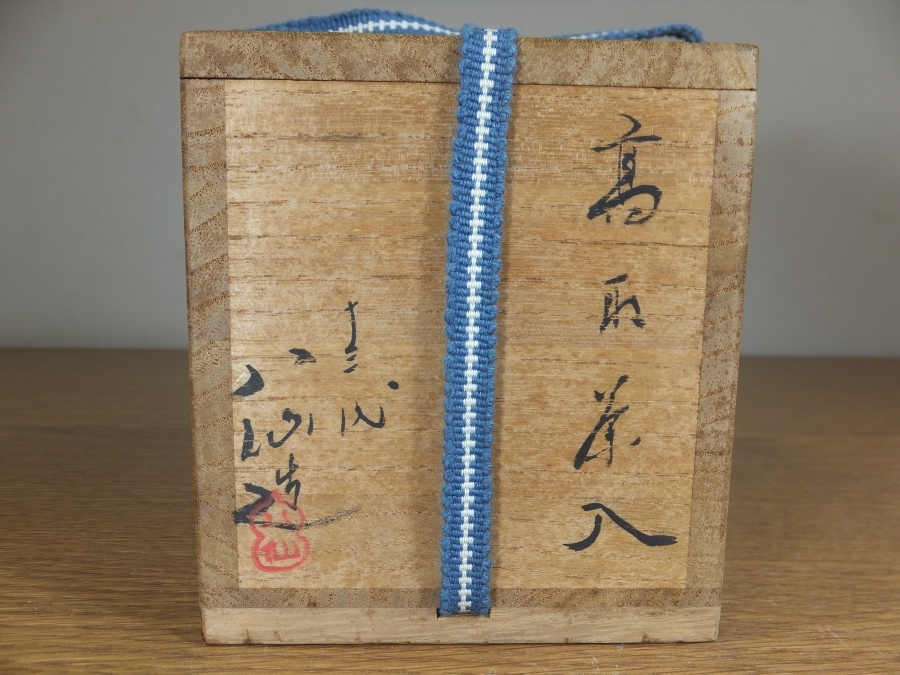 高取茶入
十三代
八仙造